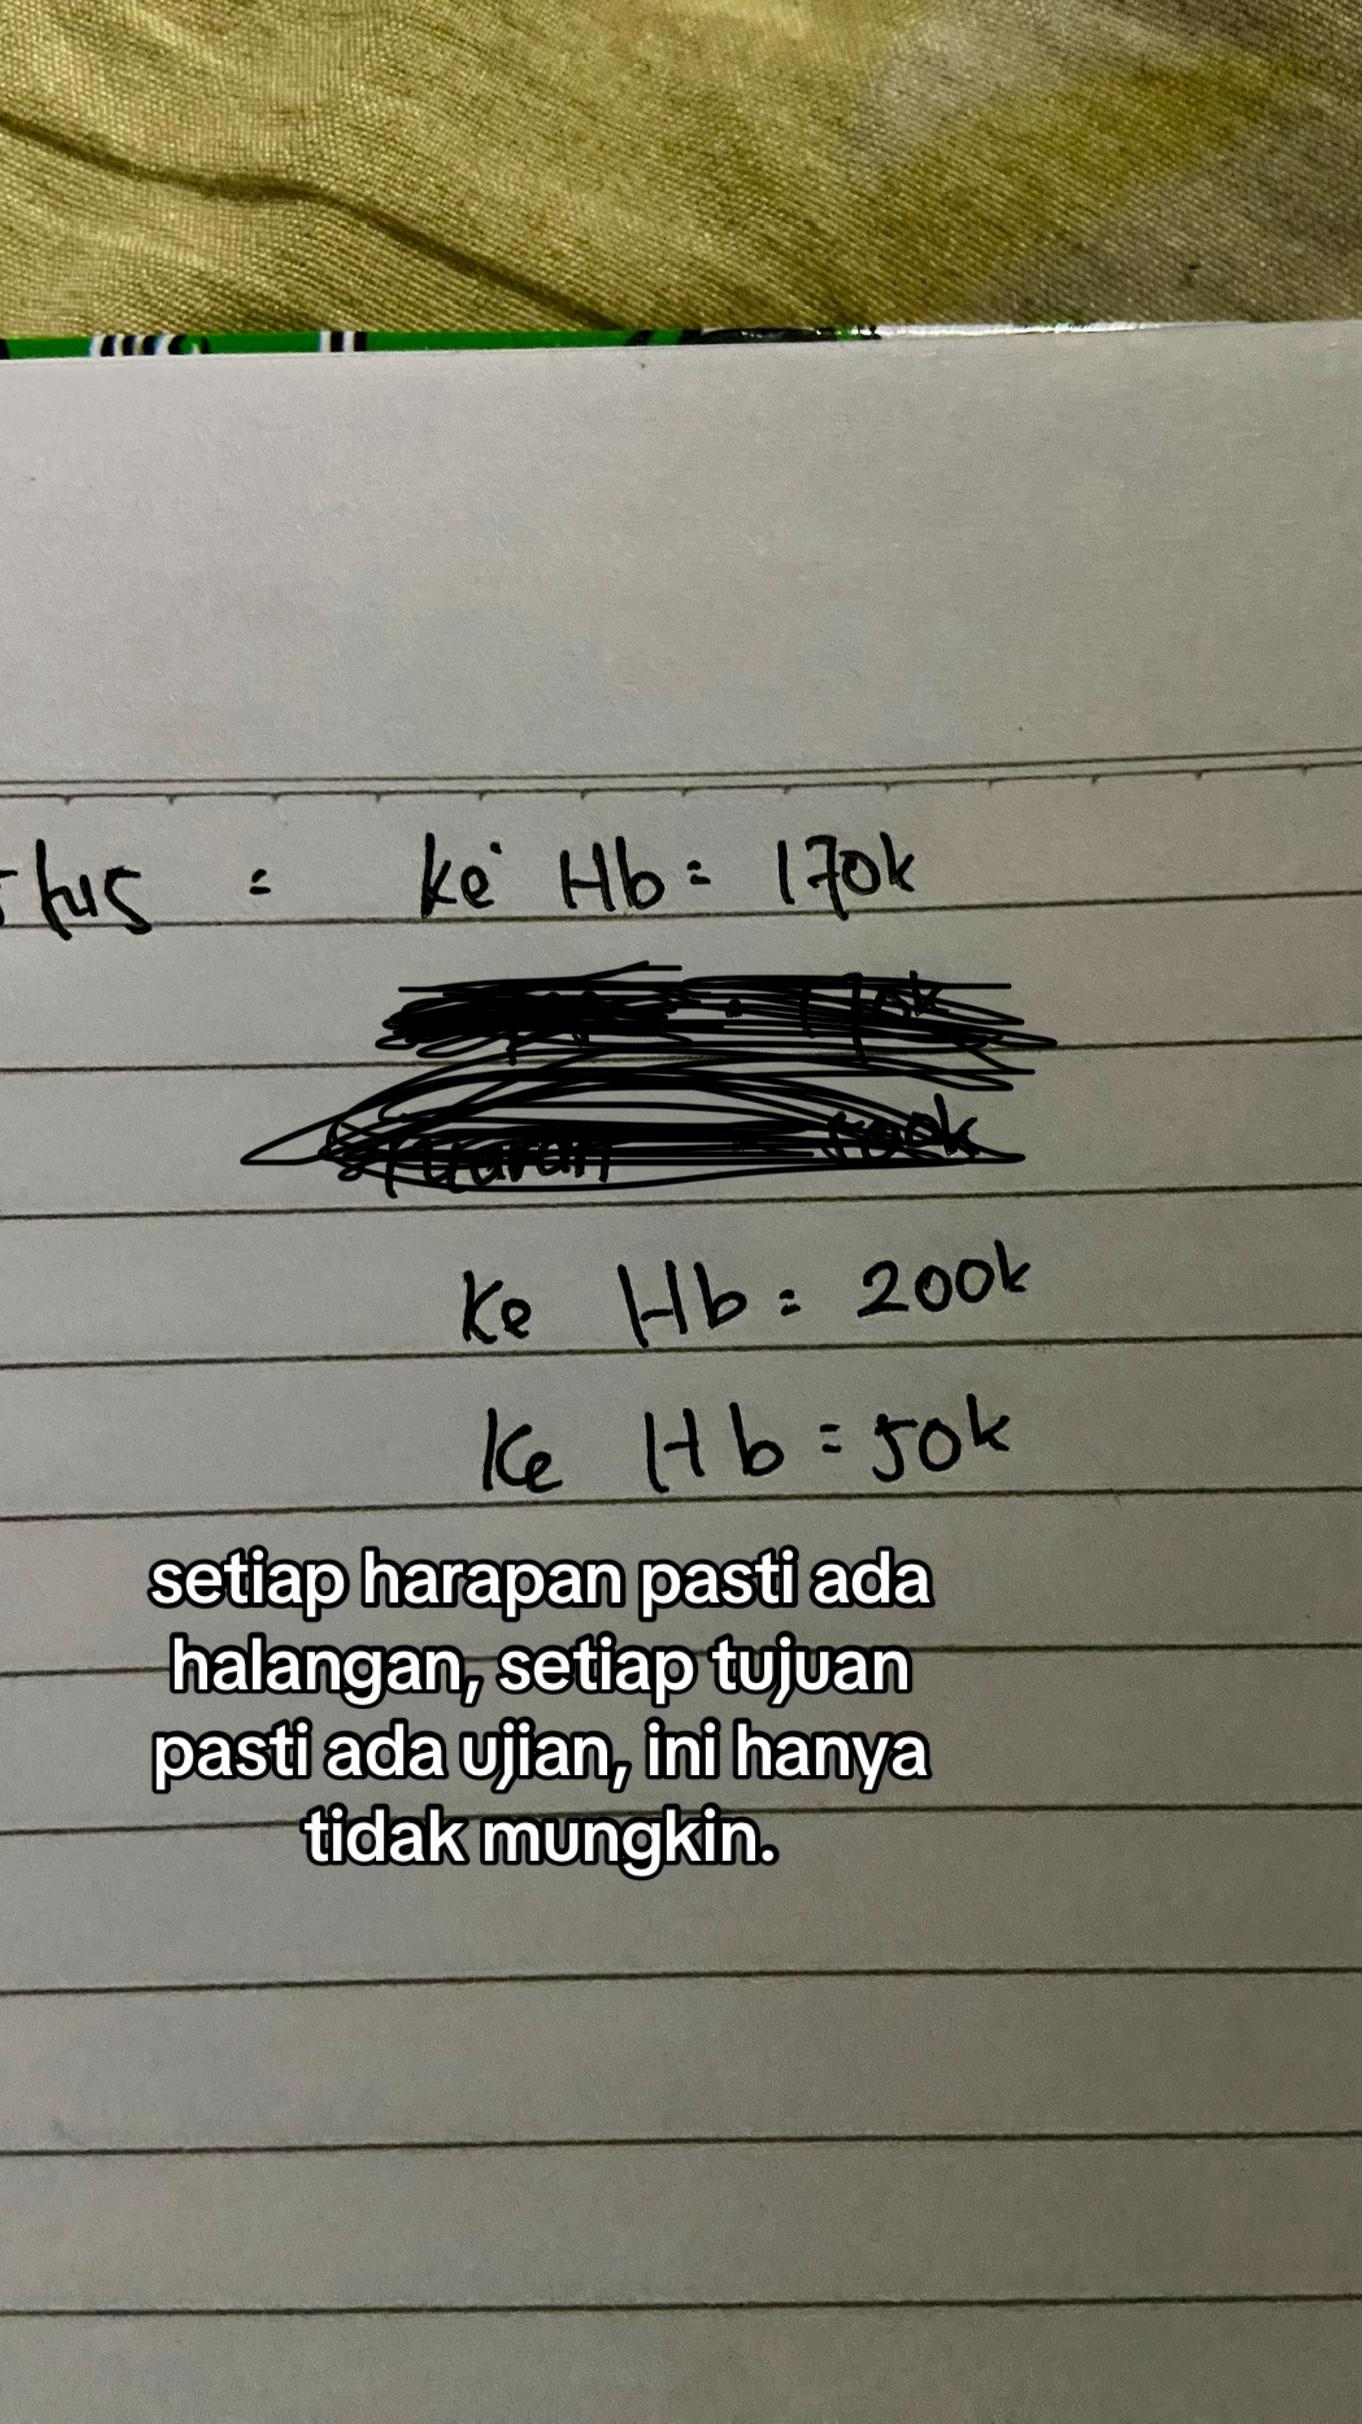 = ke Hb = 170k
Ke Hb = 200k
Ke Hb = 50k
setiap harapan pasti ada
halangan, setiap tujuan
pasti ada ujian, ini hanya
tidak mungkin.